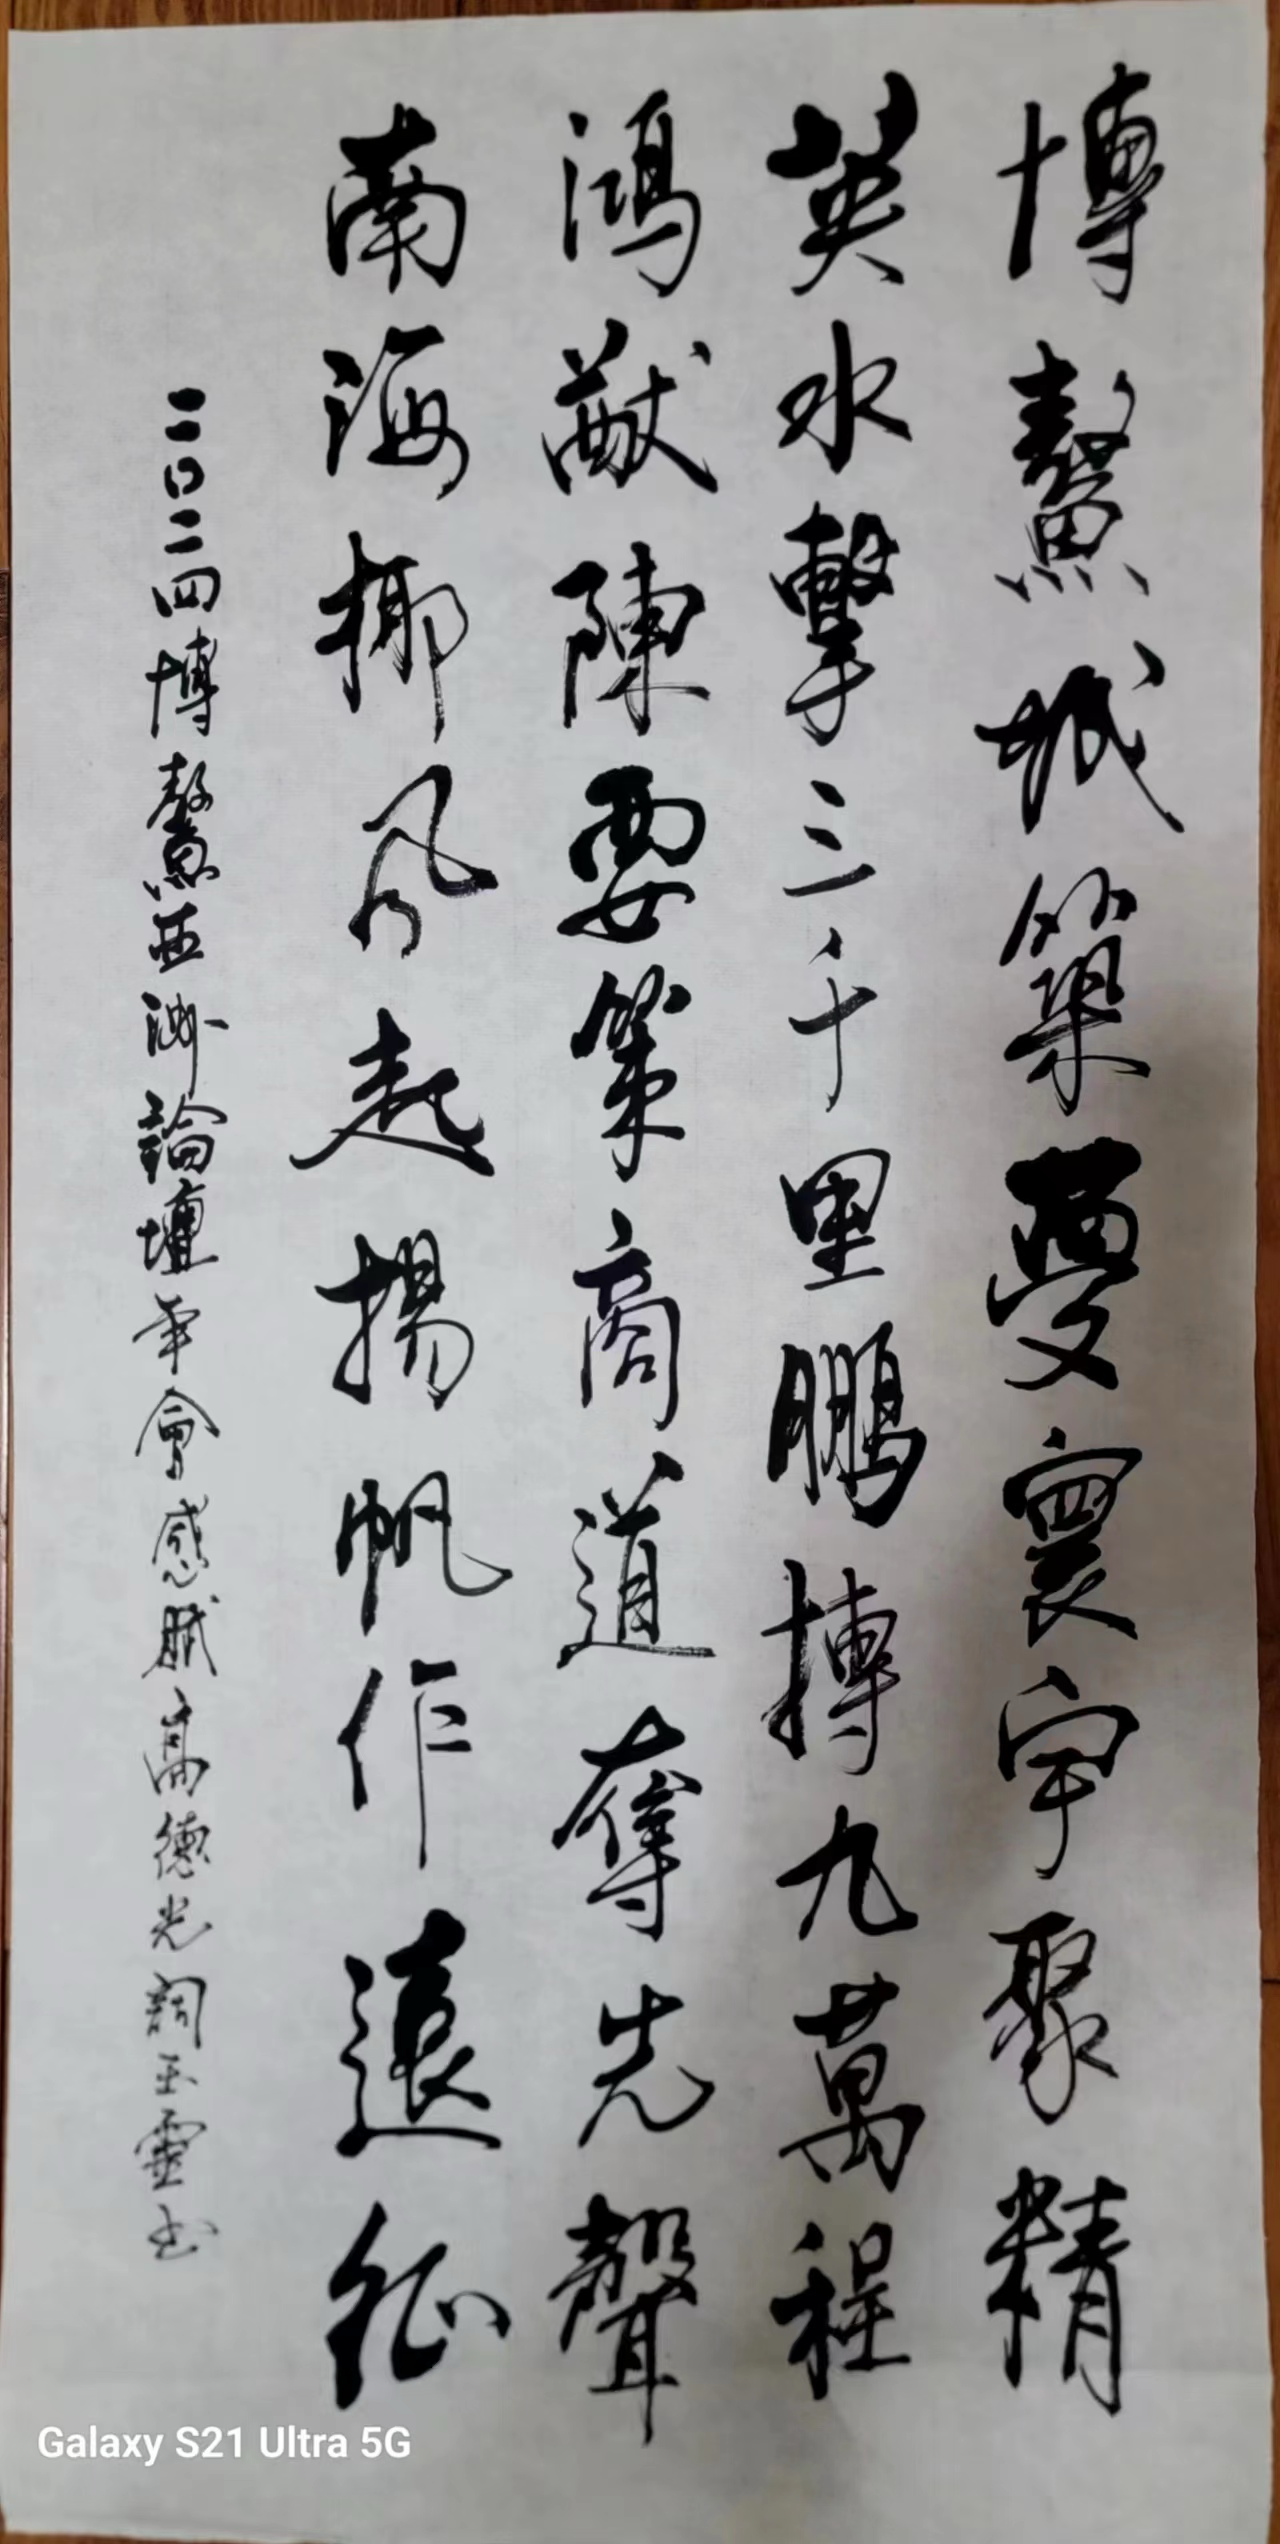 博鰲城築夢寰宇聚精
英水擊三千里鵬搏九萬程
鴻猷陳要策商道奪先聲
南海椰風起揚帆作遠征
二〇二四博鰲亞洲論壇年會感賦高德光詞玉靈书
Galaxy S21 Ultra 5G